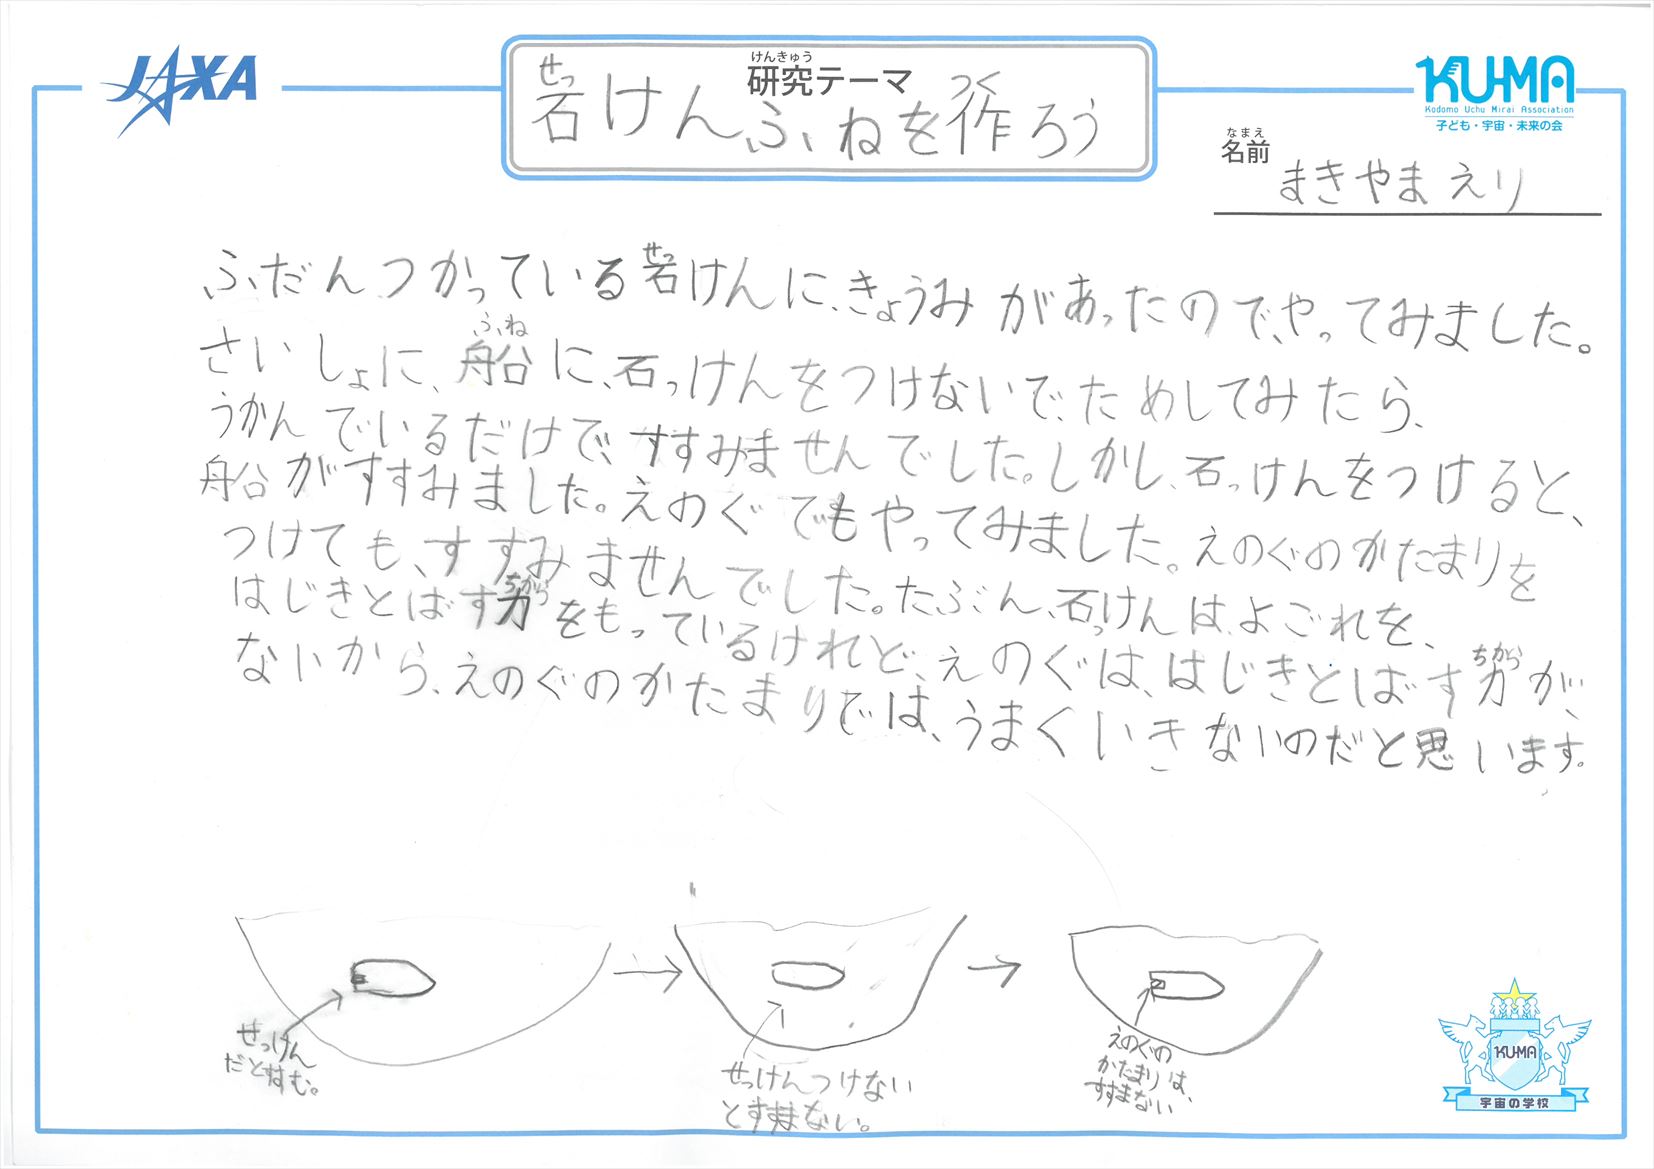 JAXA
けんきゅう
研究テーマ
せっ つく
岩けんふねを作ろう
KU-MA
Kodomo Uchu Mirai Association
子ども・宇宙・未来の会
なまえ
名前
まきやま えり
せっ
ふだんつかっている岩けんに、きょうみがあったので、やってみました。
ふね
さいしょに、船に、石っけんをつけないで、ためしてみたら、
うかんでいるだけで、すすみませんでした。しかし、石っけんをつけると、
船がすすみました。えのぐでもやってみました。えのぐのかたまりを
つけても、すすみませんでした。たぶん、石っけんは、よごれを、
ちから
はじきとばす力をもっているけれど、えのぐは、はじきとばす力が、
ちから
ないから、えのぐのかたまりでは、うまくいきないのだと思います。
せっけん
だとすすむ。
せっけんつけない
とすすまない。
えのぐの
かたまりは、
すすまない
KU-MA
宇宙の学校